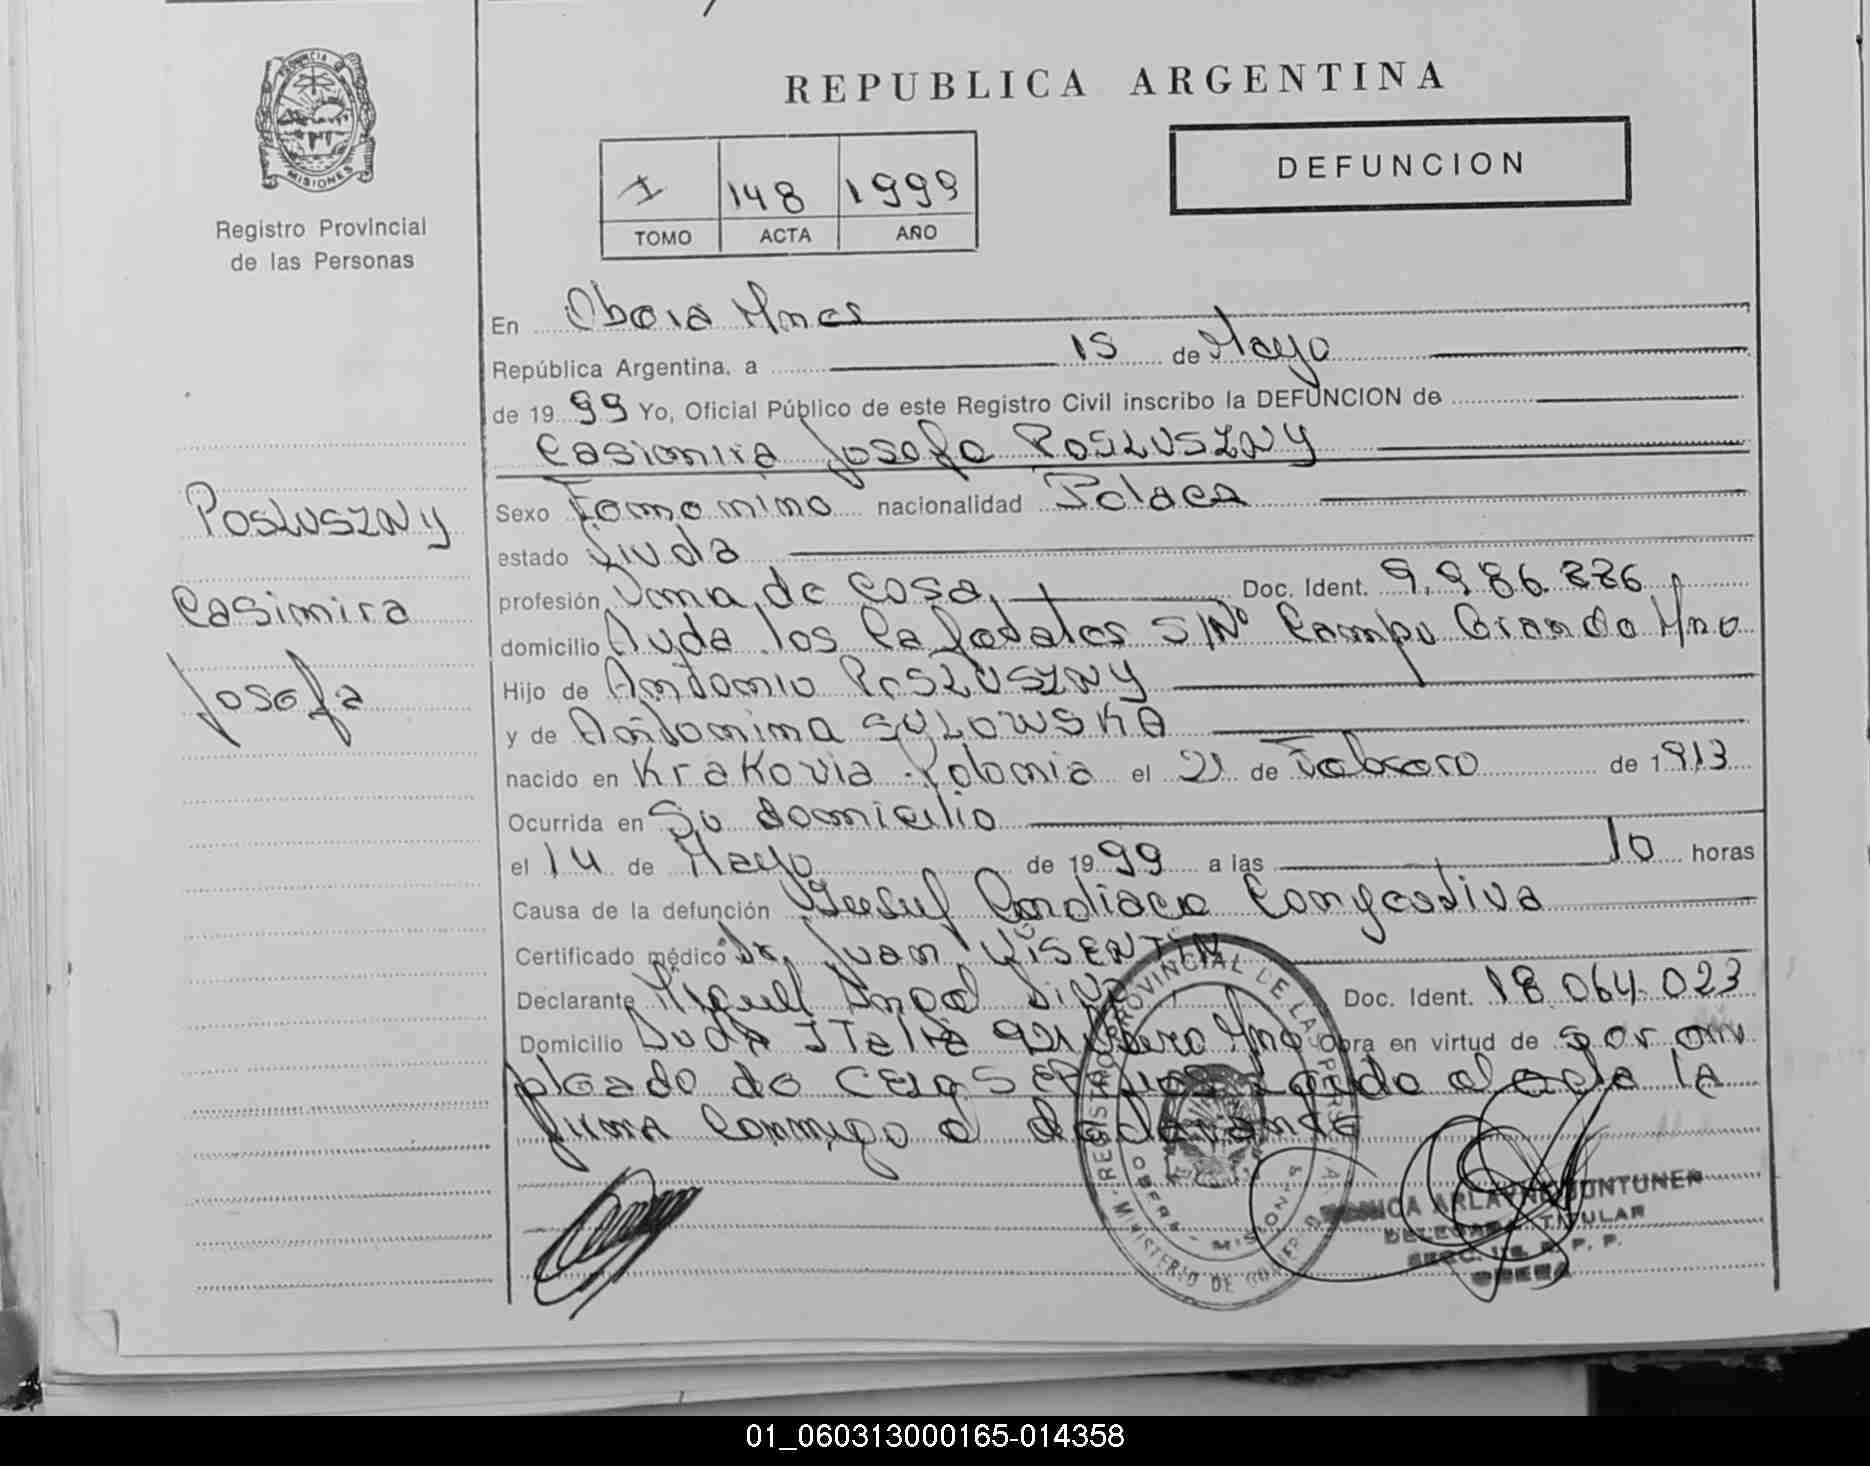 REPUBLICA ARGENTINA
PROVINCIA DE
MISIONES
Registro Provincial
de las Personas
I 148 1999
TOMO ACTA AÑO
DEFUNCION
En Obera Mnes
República Argentina, a 15 de Mayo
de 1999 Yo, Oficial Público de este Registro Civil inscribo la DEFUNCION de
Casimira Josefa POSLUSZNY
POSLUSZNY
Casimira
Josefa
Sexo Femenino nacionalidad Polaca
estado Viuda
profesión Ama de casa Doc. Ident. 9.986.226
domicilio Avda los Cafetales S/Nº Campo Grande Mnes
Hijo de Antonio POSLUSZNY
y de Antonina SYLOWSKA
nacido en Krakovia Polonia el 21 de Febrero de 1913
Ocurrida en Su domicilio
el 14 de Mayo de 1999 a las 10 horas
Causa de la defunción Insuf Cardiaca Congestiva
Certificado médico Dr. Juan VISENTIN
Declarante Miguel Angel Doc. Ident. 18.064.023
Domicilio Avda ITalia 921 Obera Mnes Obra en virtud de ser em
pleado de CELA Leida el acta la
firma conmigo el declarante
REGISTRO PROVINCIAL DE LAS PERSONAS
MINISTERIO DE GOBIERNO
OBERA - MISIONES
MONICA ARLAYNE
DELEGADA TITULAR
R. P. P.
OBERA
01_060313000165-014358